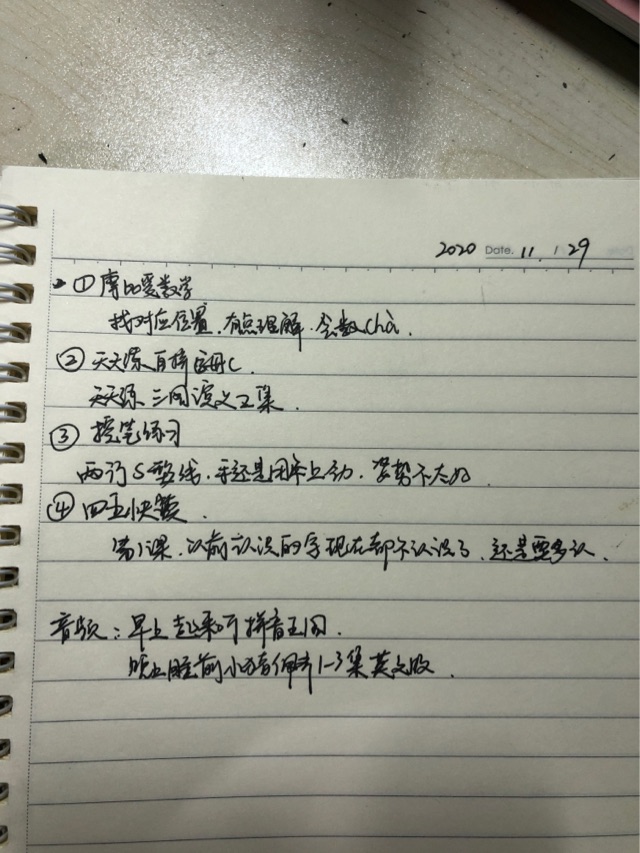 2020 Date. 11 / 29
① 摩比爱数学
找对应位置、有点理解、会数
② 天天练 自拼 C.
天天练 三国演义2集.
③ 控笔练习
两行S型线、手还是用本上动、姿势不太好
④ 四五快读.
第1课、以前认识的字现在都不认识了、还是要多认.
音频：早上起来听拼音王国.
晚上睡前小猪佩奇1-3集英文版.